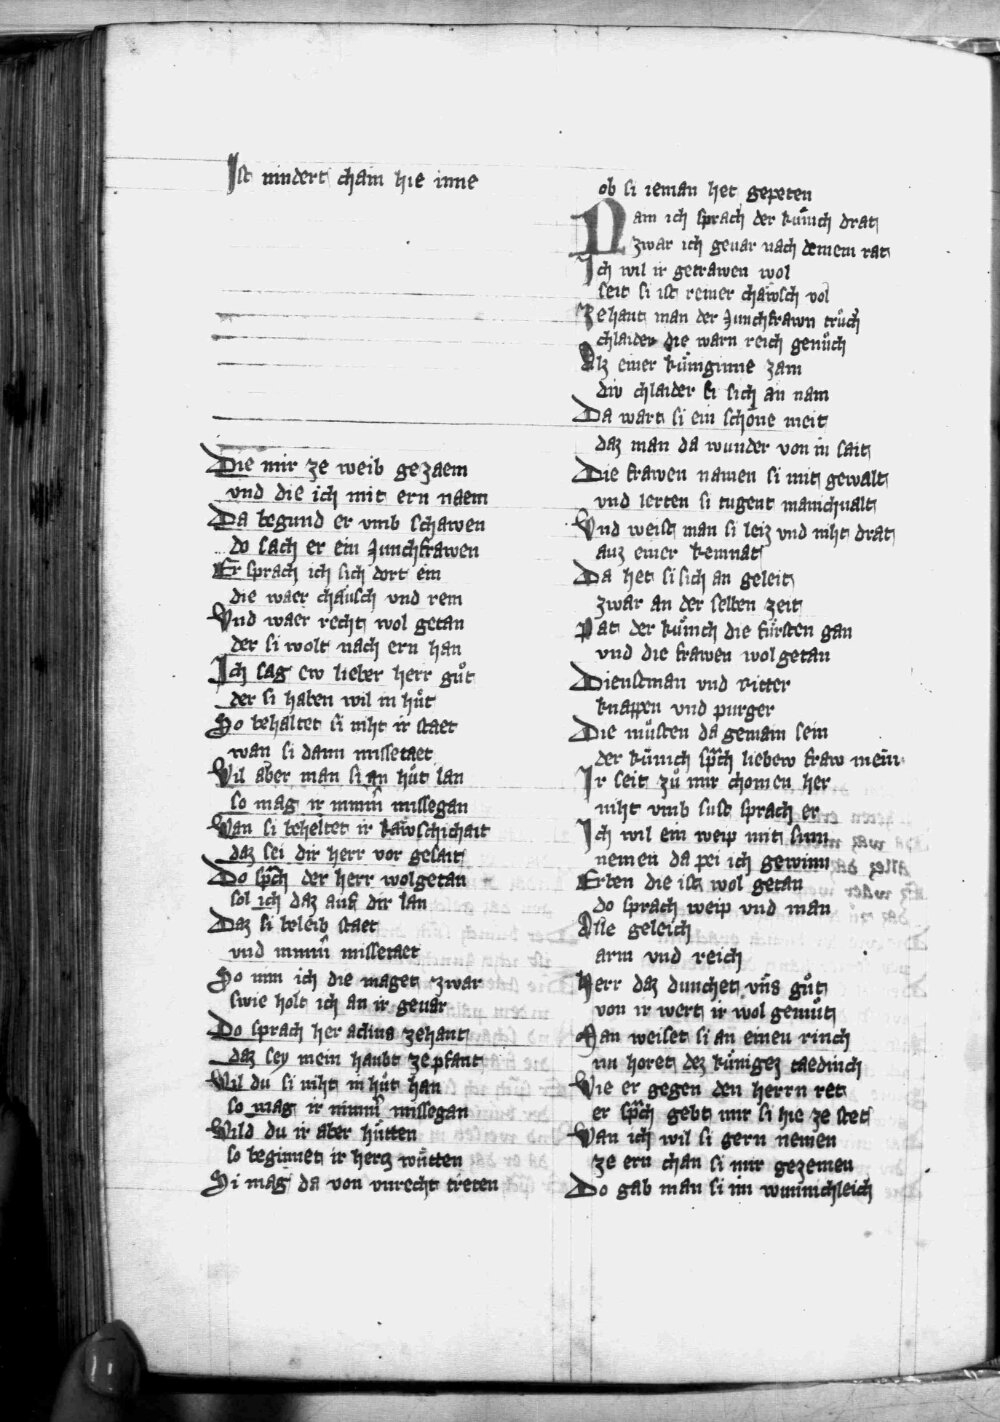 Ist nindert cham hie inne
Die mir ze weib gezaem
vnd die ich mit ern naem
Da begund er vmb schawen
do sach er ein Junchfrawen
Er sprach ich sich dort ein
die waer chäusch vnd rein
Vnd waer recht wol getan
der si wolt nach ern han
Ich sag ew lieber herr gůt
der si haben wil in hůt
So behaltet si niht ir staet
wan si dann missetaet
Wil aber man si an hůt lan
so mag ir nimm̄ missegan
Wan si beheltet ir kawschichait
daz sei dir herr vor gesait
Do sp̄ch der herr wolgetan
sol ich daz auf dir lan
Daz si beleib staet
vnd nimm̄ missetaet
So nim ich die maget zwar
swie holt ich an ir geuar
Do sprach heraclius zehant
daz sey mein haubt ze pfant
Wil du si niht in hůt han
so mag ir nimm̄ missegan
Wild du ir aber hůtten
so beginnet ir hercz wůtten
Si mag da von vnrecht treten
ob si ieman het gepeten
Nam ich sprach der kůnich drat
zwar ich geuar nach deinem rat
Ich wil ir getrawen wol
seit si ist reiner chawsch vol
Zehant man der Junchfrawn trůch
chlaider die warn reich genůch
Alz einer kůniginne zam
div chlaider si sich an nam
Da wart si ein schöne meit
daz man da wunder von in sait
Die frawen namen si mit gewalt
vnd lerten si tugent manichualt
Vnd weist man si leiz vnd niht drat
auz einer kemnat
Da het si sich an geleit
zwar an der selben zeit
Pat der kůnich die fůrsten gan
vnd die frawen wol getan
Dienstman vnd ritter
knappen vnd purger
Die můsten da gemain sein
der kůnich sp̄ch liebew fraw mein
Ir seit zů mir chomen her
niht vmb sust sprach er
Ich wil ein weip mit sinn
nemen da pei ich gewinn
Erben die ist wol getan
do sprach weip vnd man
Alle geleich
arm vnd reich
Herr daz dunchet vn̄s gůt
von ir wert ir wol gemůt
Man weiset si an einen rinch
nu horet dez kůnigez taedinch
Wie er gegen den herrn ret
er sp̄ch gebt mir si hie ze stet
Wan ich wil si gern nemen
ze ern chan si mir gezemen
Do gab man si im wunnichleich